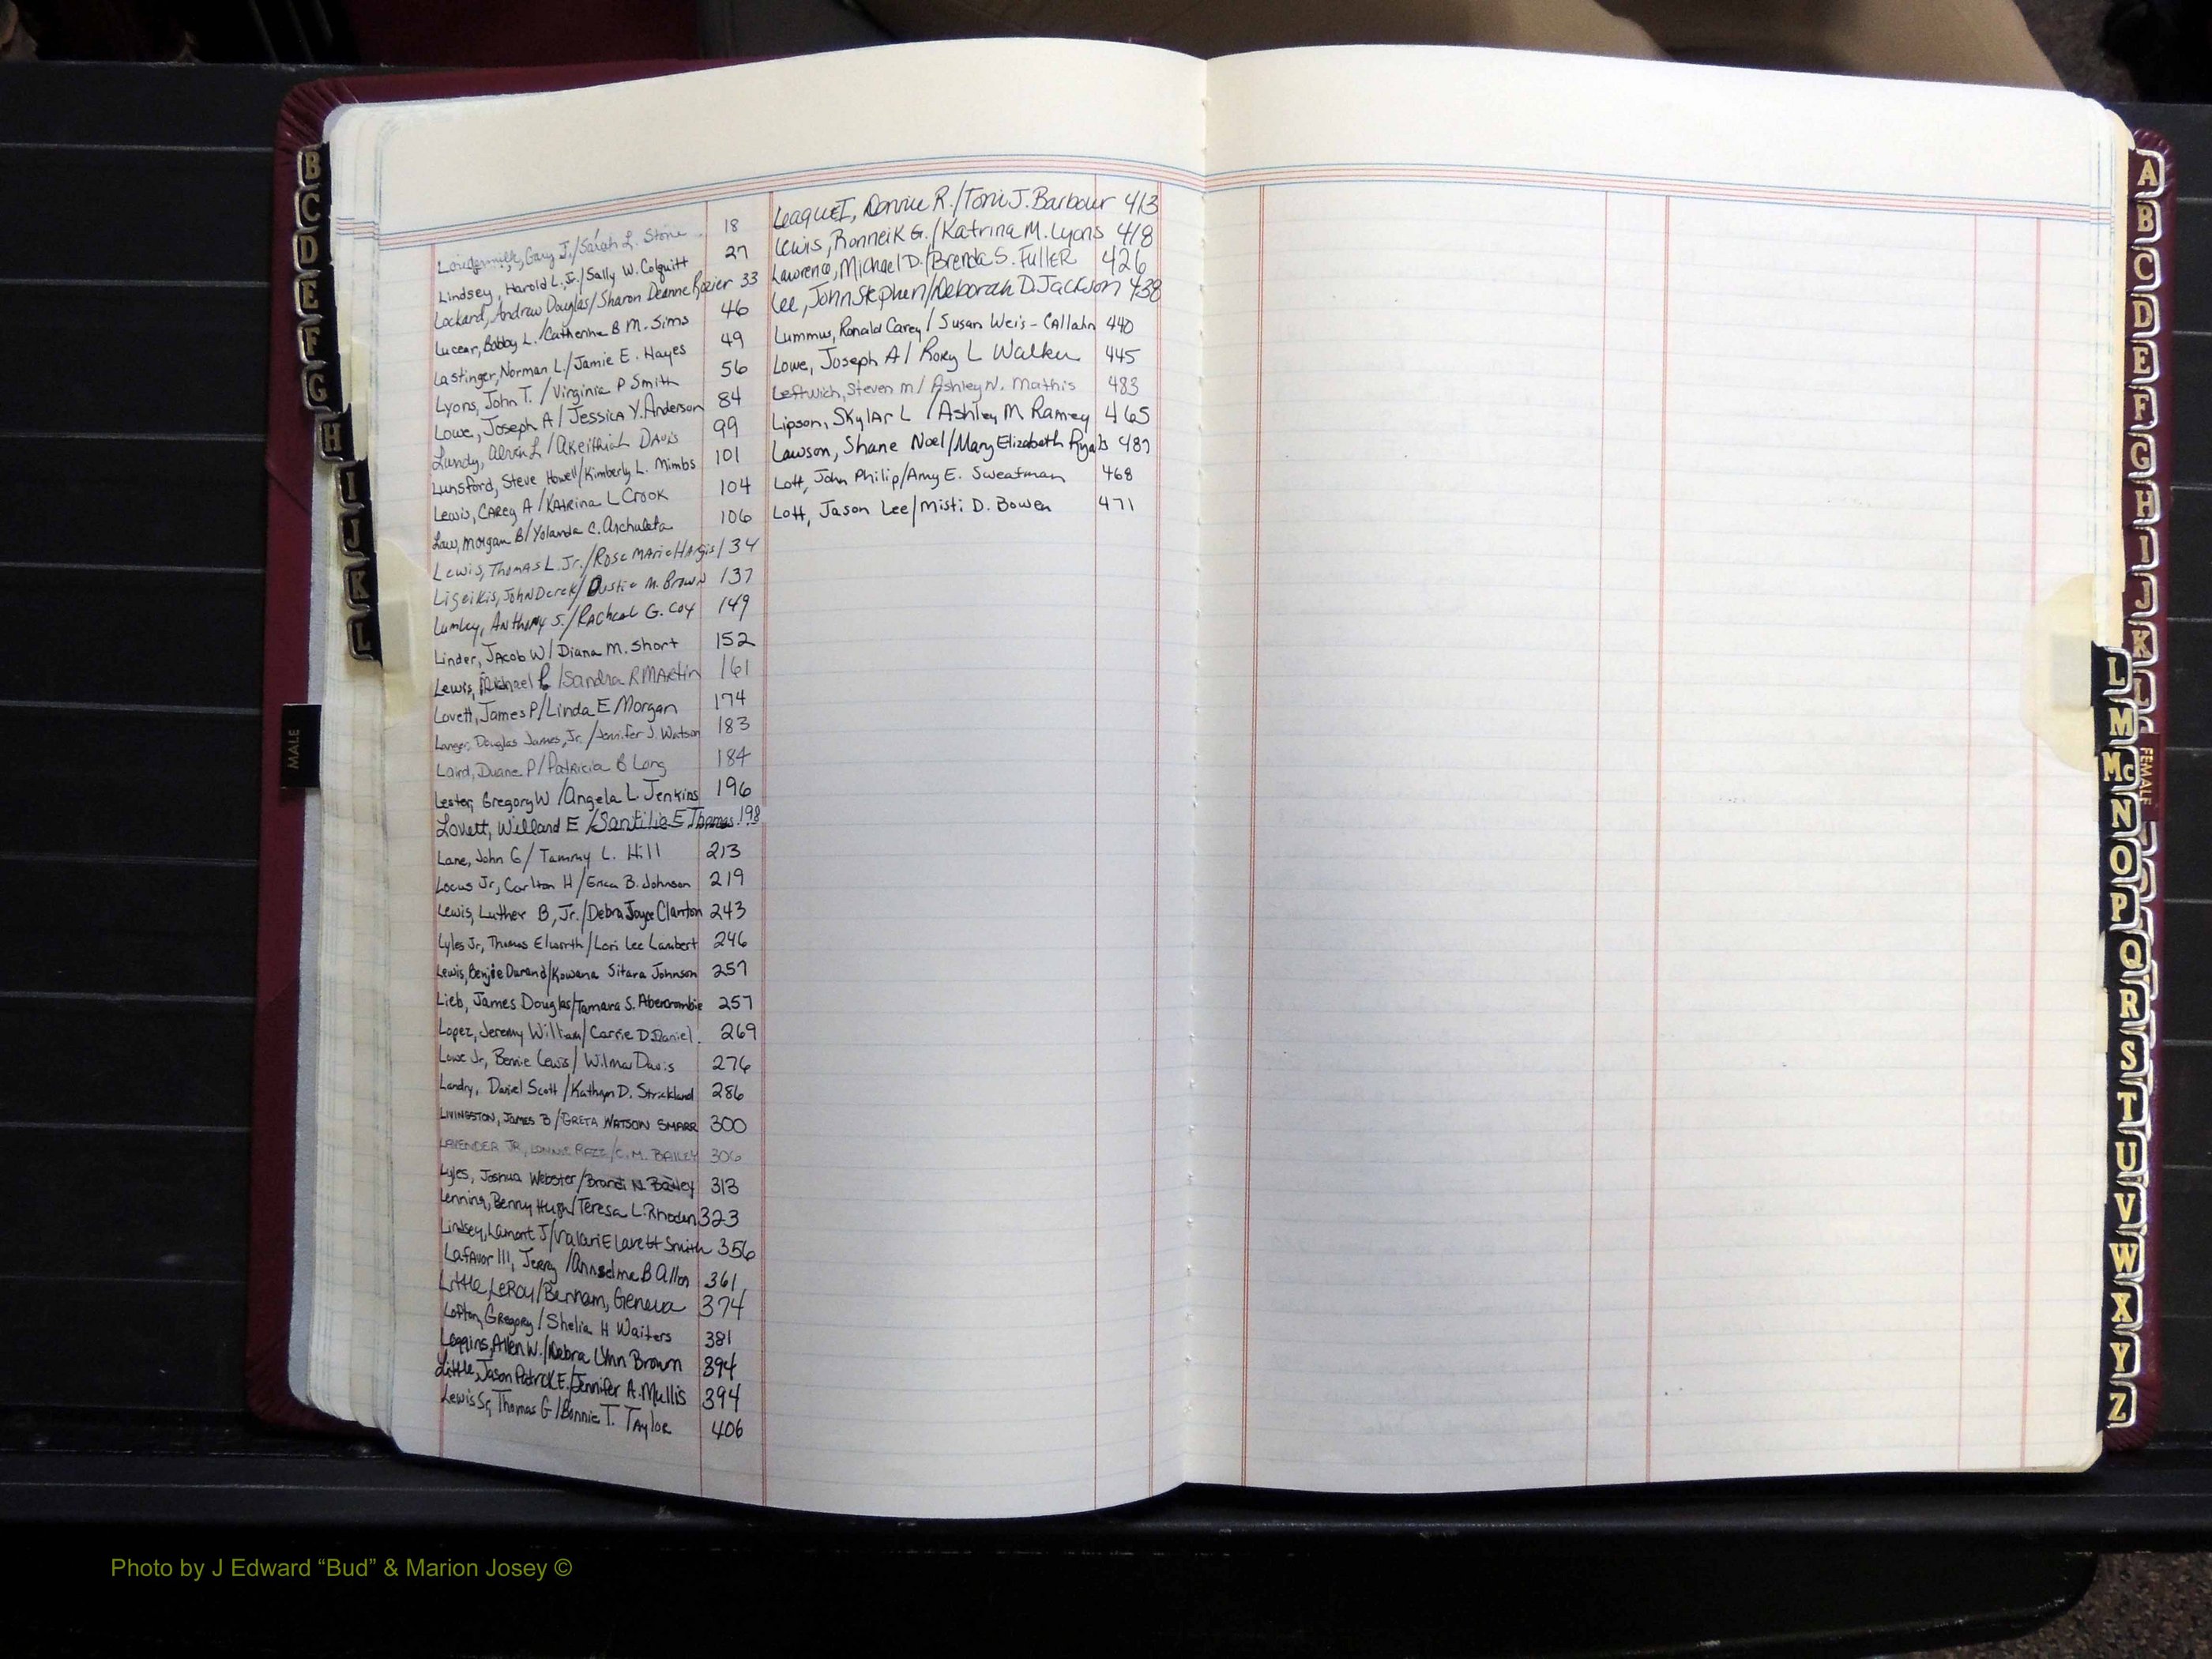 B
C
D
E
F
G
H
I
J
K
L
MALE
Gary J./Sarah L. Stone 18
Lindsey, Harold L., Jr./Sally W. Colquitt 27
Lockard, Andrew Douglas/Sharon Deanne Rozier 33
Lucear, Bobby L./Catherine B M. Sims 46
Lastinger, Norman L./Jamie E. Hayes 49
Lyons, John T. / Virginia P Smith 56
Lowe, Joseph A / Jessica Y. Anderson 84
Lundy, Alvin L / Davis 99
Lunsford, Steve Howell/Kimberly L. Mimbs 101
Lewis, Carey A / Katrina L Crook 104
Law, Morgan B/Yolanda C. Archuleta 106
Lewis, Thomas L. Jr./Rose Marie Hargis 134
Ligeikis, John Derek/ Dustie M. Brown 137
Lumley, Anthony S./Racheal G. Cox 149
Linder, Jacob W/ Diana M. Short 152
Lewis, Michael /Sandra R Martin 161
Lovett, James P/Linda E Morgan 174
Langer, Douglas James, Jr. /Jennifer J. Watson 183
Laird, Duane P/Patricia B Long 184
Lester, Gregory W /Angela L. Jenkins 196
Lovett, Willand E /Santilie E Thomas 198
Lane, John G/ Tammy L. Hill 213
Locus Jr, Carlton H /Erica B. Johnson 219
Lewis, Luther B, Jr./Debra Joyce Clanton 243
Lyles Jr, Thomas Elworth /Lori Lee Lambert 246
Lewis, Benjie Durand/Kowana Sitara Johnson 257
Lieb, James Douglas/Tamara S. Abercrombie 257
Lopez, Jeremy William/ Carrie D Daniel 269
Lowe Jr, Bennie Lewis/ Wilma Davis 276
Landry, Daniel Scott /Kathryn D. Strickland 286
LIVINGSTON, JAMES B /GRETA WATSON SMARR 300
LAVENDER JR, LONNIE /C. M. BAILEY 306
Lyles, Joshua Webster/Brandi N. Bailey 313
Benny Hugh/Teresa L. Rhoden 323
Lindsey, Lamont J/ Smith 356
LaFavor III, Jerry /Annselme B Allen 361
Little, LeRoy/Benham, Geneva 374
Lofton, Gregory / Shelia H Waiters 381
Loggins, Allen W./Debra Lynn Brown 394
Little, Jason Patrick E./Jennifer A. Mullis 394
Lewis Sr, Thomas G /Bonnie T. Taylor 406
Donnie R./Toni J. Barbour 413
Lewis, Ronneik G./Katrina M. Lyons 418
Lawrence, Michael D./Brenda S. Fuller 426
Lee, John Stephen/Deborah D. Jackson 438
Lummus, Ronald Carey / Susan Weis-Callahn 440
Lowe, Joseph A / Roxy L Walker 445
Leftwich, Steven M / Ashley N. Mathis 483
Lipson, Skylar L / Ashley M Ramey 465
Lawson, Shane Noel/Mary Elizabeth Ryals 487
Lott, John Philip/Amy E. Sweatman 468
Lott, Jason Lee/Misti D. Bowen 471
A
B
C
D
E
F
G
H
I
J
K
L
FEMALE
L
M
Mc
N
O
P
Q
R
S
T
U
V
W
X
Y
Z
Photo by J Edward “Bud” & Marion Josey ©